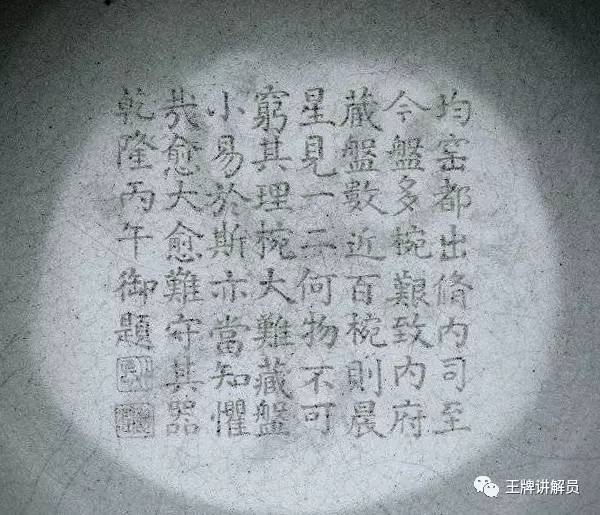 均窑都出脩内司至
今盤多椀艱致内府
藏盤數近百椀則晨
星見一二何物不可
窮其理椀大難藏盤
小易於斯亦當知懼
哉愈大愈難守其器
乾隆丙午御題
王牌讲解员